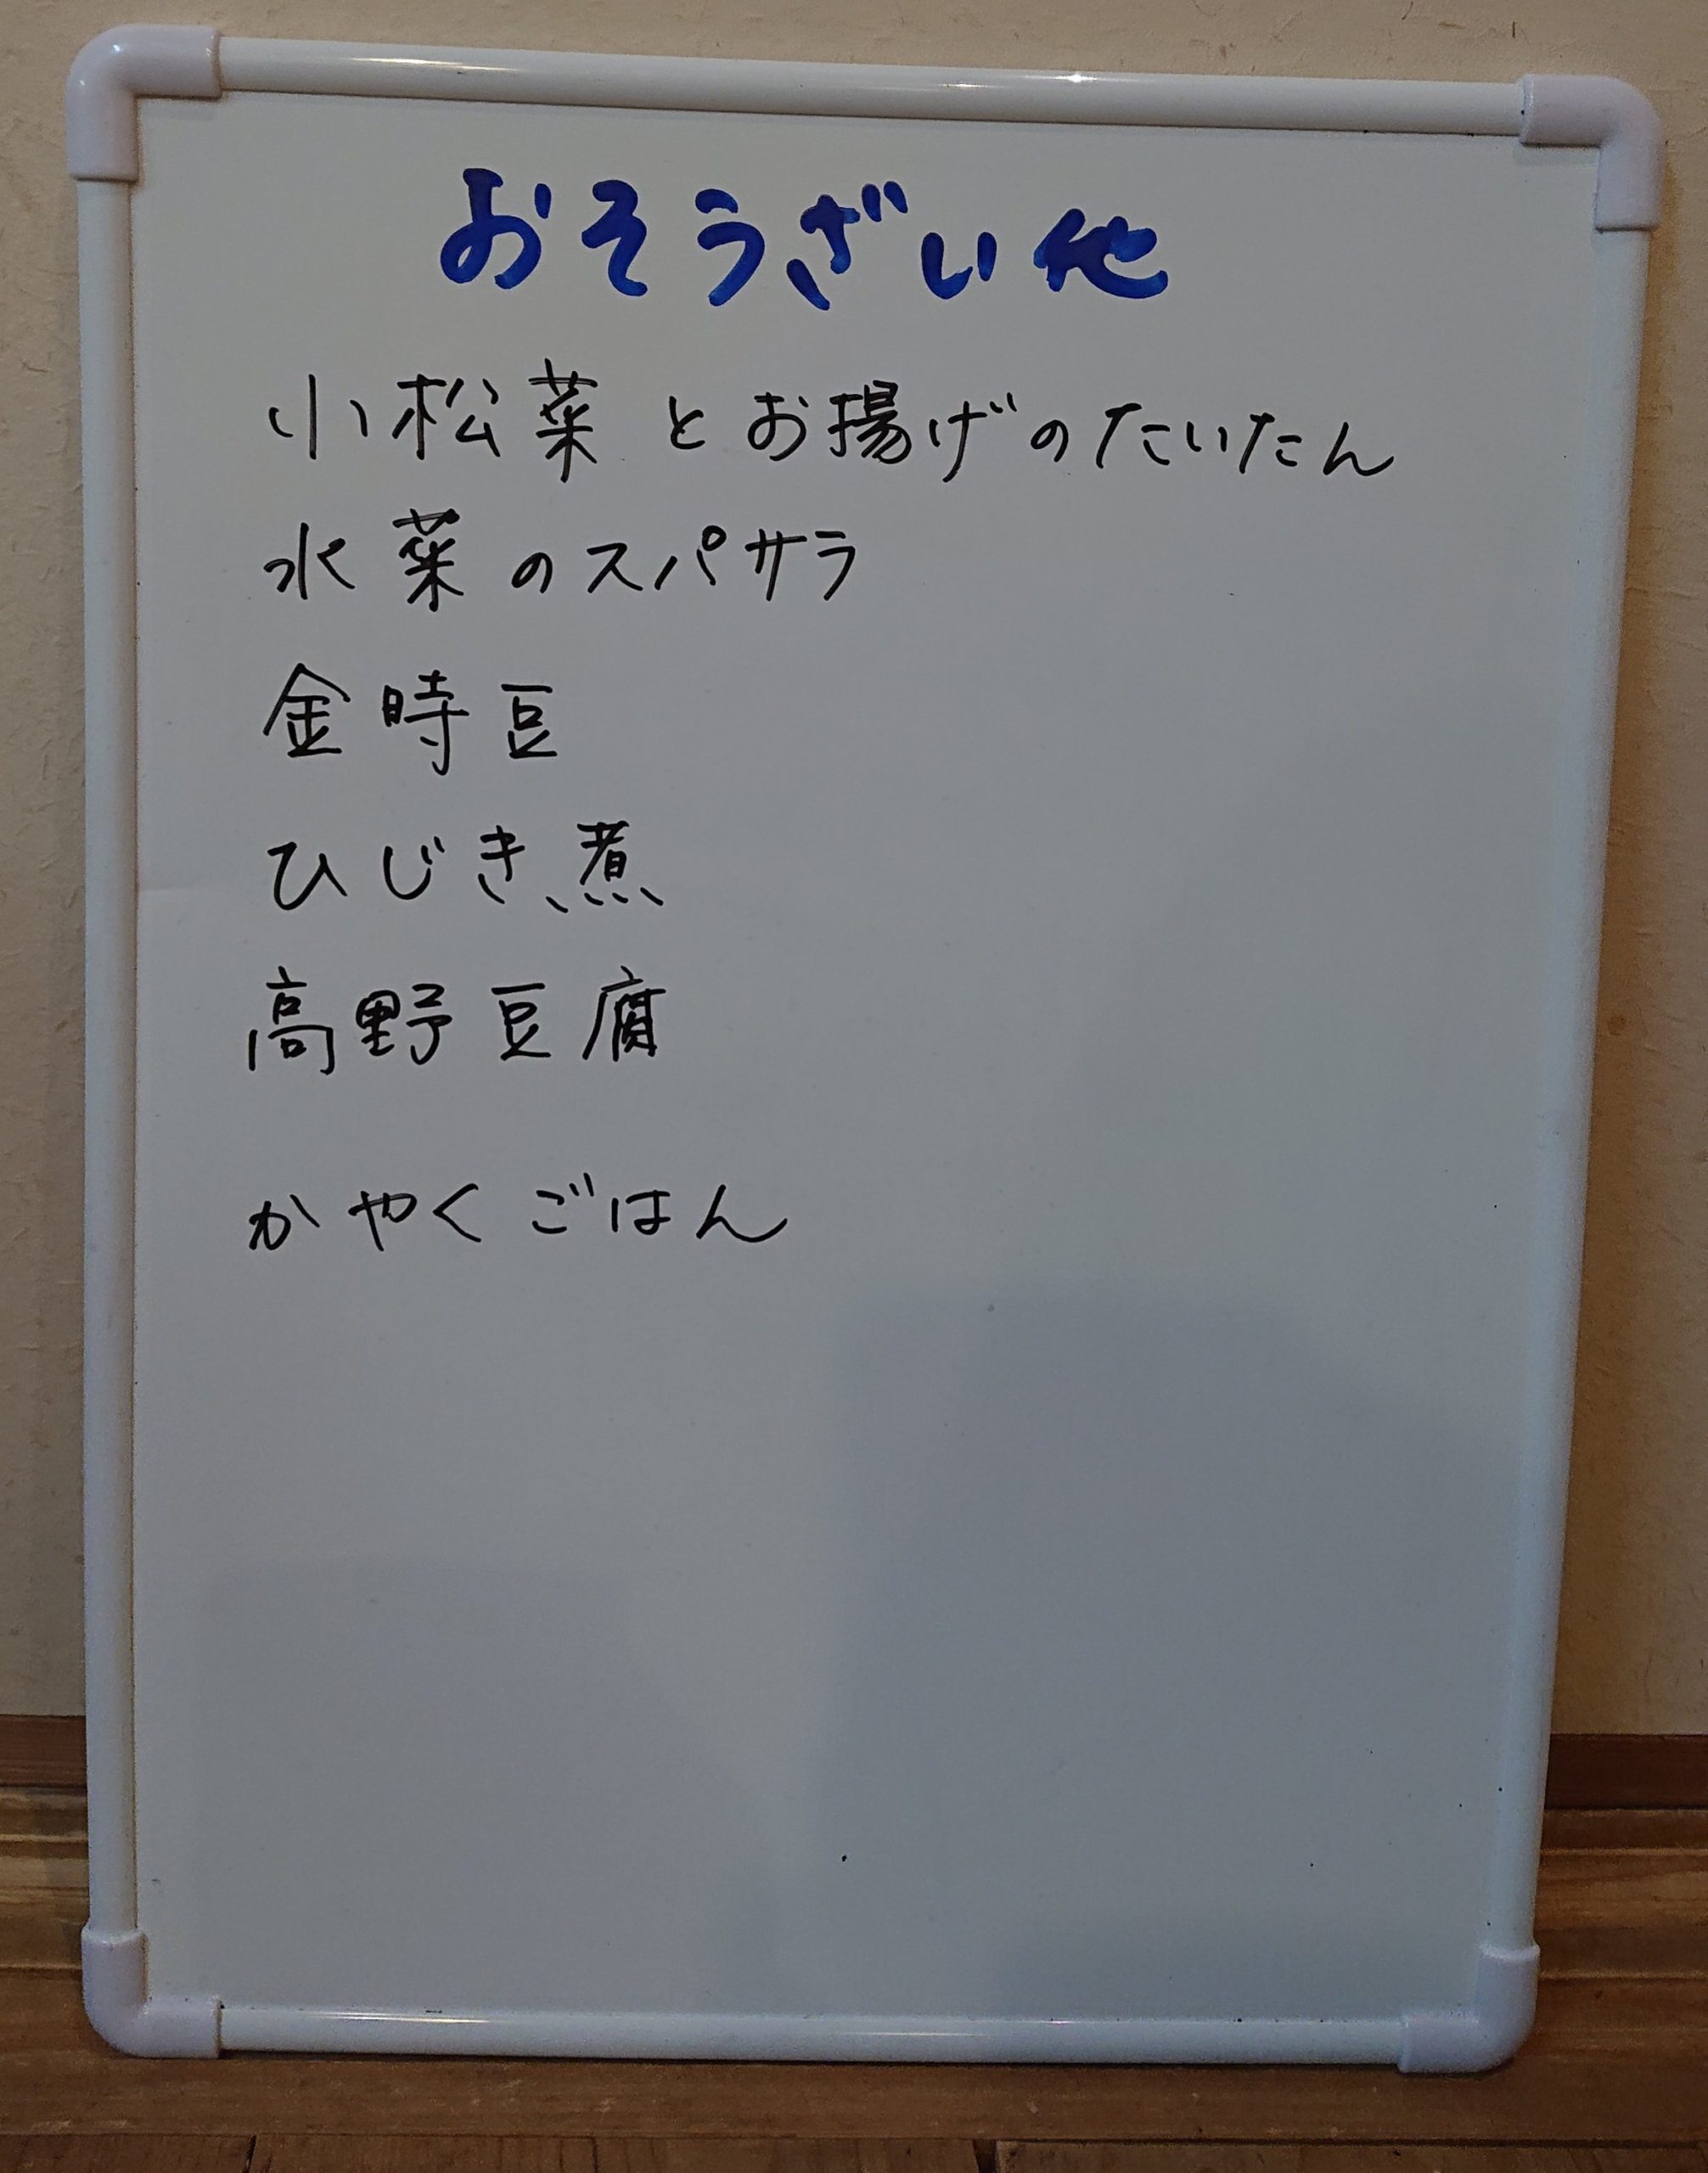 おそうざい他
小松菜とお揚げのたいたん
水菜のスパサラ
金時豆
ひじき煮
高野豆腐
かやくごはん